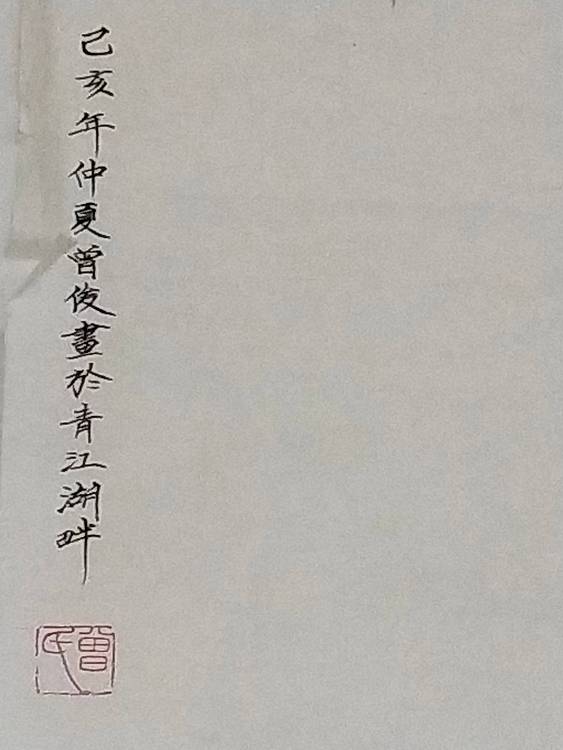 己亥年仲夏曾俊畫於青江湖畔
曾氏